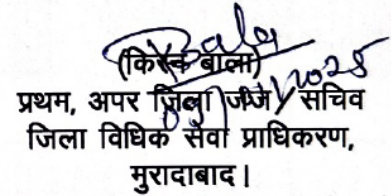 Bala
(किरन बाला)
प्रथम, अपर जिला जज / सचिव
जिला विधिक सेवा प्राधिकरण,
मुरादाबाद।